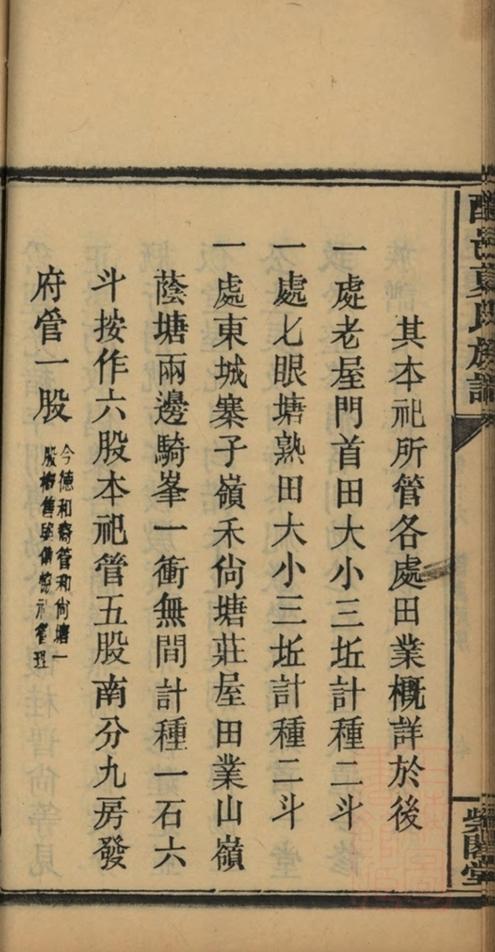 醴邑夏氏族譜
紫閣堂
其本祀所管各處田業概詳於後
一處老屋門首田大小三坵計種二斗
一處七眼塘熟田大小三坵計種二斗
一處東城寨子嶺禾尙塘莊屋田業山嶺
蔭塘兩邊騎峯一衝無間計種一石六
斗按作六股本祀管五股南分九房發
府管一股
今德和齋管和尙塘一
股